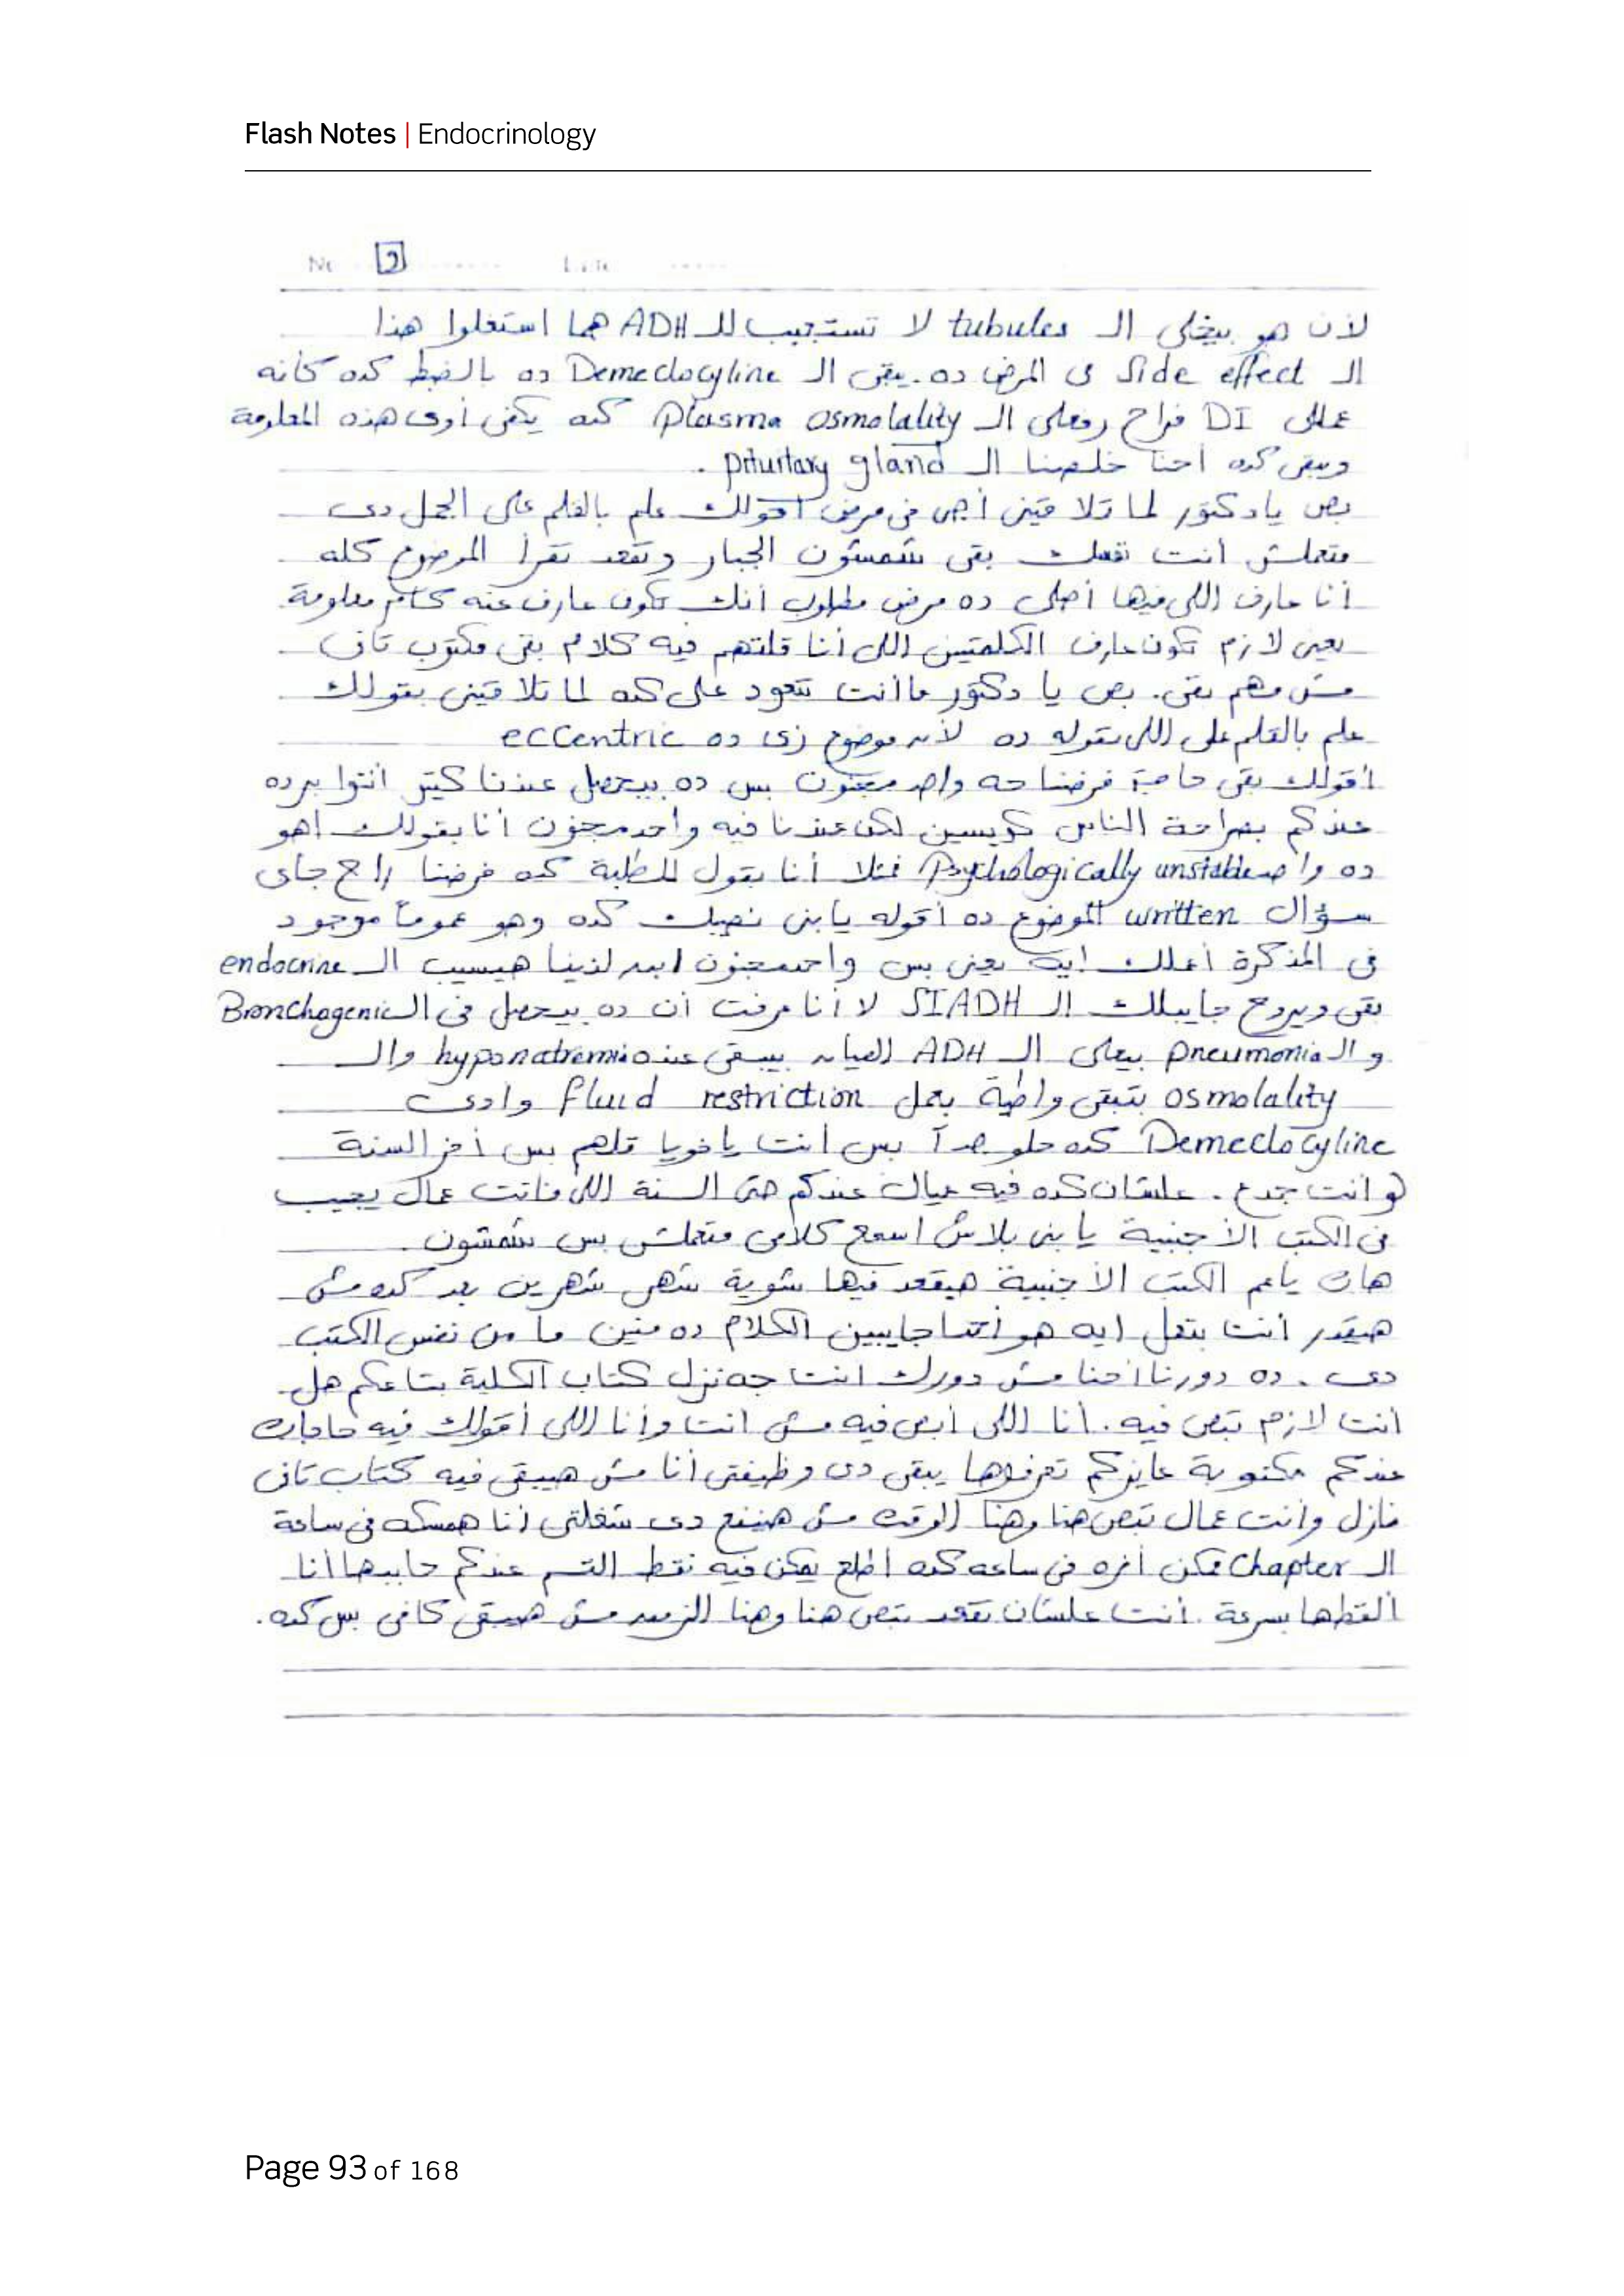 Flash Notes | Endocrinology
No 9 Date
لأن هو بيخلى الـ tubules لا تستجيب للـ ADH هما استغلوا هذا
الـ side effect فى المرض ده. يبقى الـ Demeclocyline ده بالضبط كده كأنه
عمل DI فراح رفعلى الـ plasma osmolality كده يكفى أوى هذه المعلومة
ويبقى كده احنا خلصنا الـ pituitary gland .
بص يا دكتور لما تلاقينى أجى فى مرض أقولك علم بالقلم على الجمل دى
متعملش أنت نفسك بقى شمشون الجبار وتقعد تقرأ الموضوع كله
أنا عارف اللى فيها أصلى ده مرض مطلوب أنك تكون عارف عنه كام معلومة
يعنى لازم تكون عارف الكلمتين اللى أنا قلتهم فيه كلام بقى مكتوب تانى
مش مهم بقى. بص يا دكتور ما أنت تتعود على كده لما تلاقينى بقولك
علم بالقلم على اللى بقوله ده لأن موضوع زى ده eccentric
أقولك بقى حاجة فرضنا جه واحد مجنون بس ده بيحصل عندنا كتير أنتوا برده
عندكم بصراحة الناس كويسين لكن عندنا فيه واحد مجنون أنا بقولك أهو
ده واحد Psychologically unstable فمثلا أنا بقول للطلبة كده فرضنا راح جاى
سؤال written الموضوع ده أقوله يا بنى نصيبك كده وهو عموماً موجود
فى المذكرة أعملك ايه يعنى بس واحد مجنون ابن لذينا هيسيب الـ endocrine
بقى ويروح جايبلك الـ SIADH لا أنا عرفت أن ده بيحصل فى الـ Bronchogenic
و الـ pneumonia بيعلى الـ ADH العيان بيبقى عنده hyponatremia والـ
osmolality بتبقى واطية بعمل fluid restriction وادى
Demeclocyline كده حلو جداً بس أنت ياخويا تلهم بس أخر السنة
لو انت جدع . علشان كده فيه عيال عندكم حتى السنة اللى فاتت عمال يجيب
فى الكتب الأجنبية يا بنى بلاش اسمع كلامى متعملش بس شمشون .
هات ياعم الكتب الأجنبية هيقعد فيها شوية شهر شهرين بعد كده مش
هيقدر أنت بتعمل ايه هو احنا جايبين الكلام ده منين ما من نفس الكتب
دى . ده دورنا احنا مش دورك انت جه نزل كتاب الكلية بتاعكم هل
أنت لازم تبص فيه . أنا اللى أبص فيه مش انت وأنا اللى أقولك فيه حاجات
عندكم مكتوبة عايزكم تعرفوها يبقى دى وظيفتى أنا مش هيبقى فيه كتاب تانى
نازل وانت عمال تبص هنا وهنا الوقت مش هينفع دى شغلتى أنا همسكه فى ساعة
الـ Chapter ممكن أفره فى ساعه كده أطلع يمكن فيه نقط القسم عندكم جايبها أنا
ألقطها بسرعة . أنت علشان تقعد تبص هنا وهنا مش هيبقى كافى بس كده .
Page 93 of 168